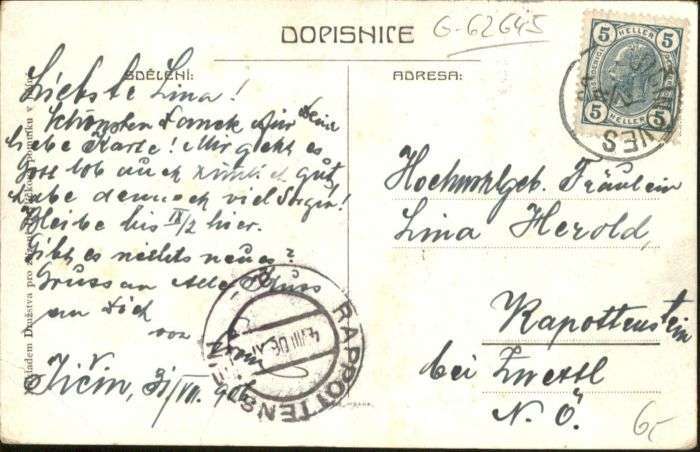 DOPISNICE
G-62645
SDĚLENÍ:
ADRESA:
5 HELLER 5
5 HELLER 5
Liebste Lina!
Schönsten Dank für Deine
liebe Karte! Mir geht es
Gott lob auch ziemlich gut
habe dennoch viel Sorgen!
Bleibe bis IX/2 hier.
Gibt es nichts neues
Gruss an Alle Kuss
an Dich
von
Jičín, 31/VII. 906
Hochwohlgeb. Fräulein
Lina Herold,
Rapottenstein
bei Zwettl
N. Ö.
RAPPOTTENSTEIN
4.VIII.06
6,-
Nákladem Družstva pro
pomníku v